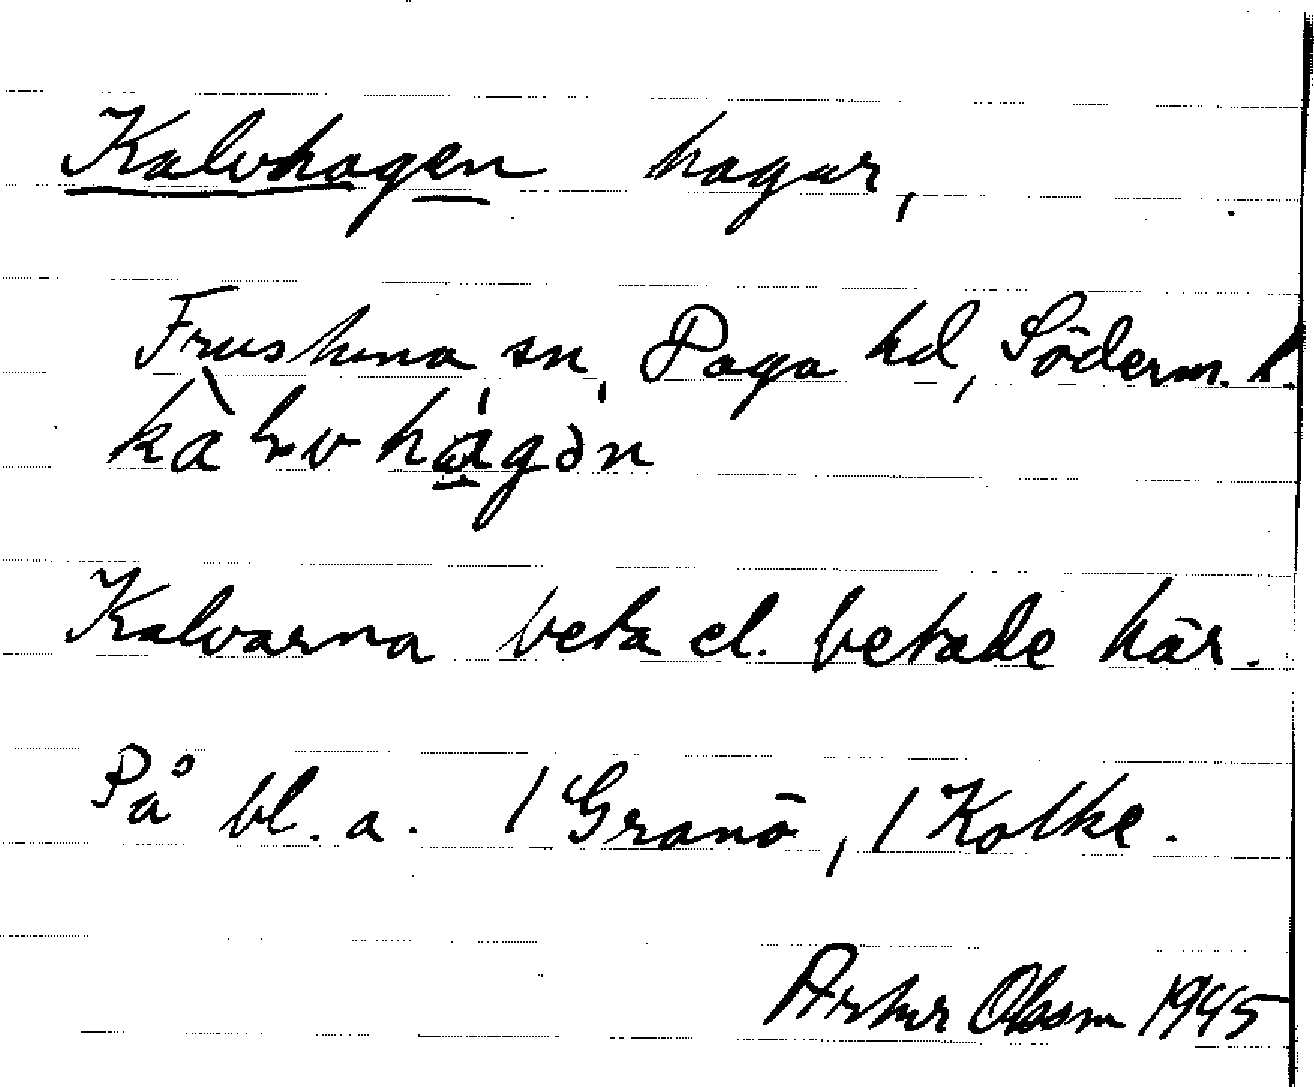 Kalvhagen hagar,
Frustuna sn, Daga hd, Söderm. l.
kàlvhágən
Kalvarna beta el. betade här.
På bl. a. 1 Granö, 1 Kolke.
Artur Olsson 1945